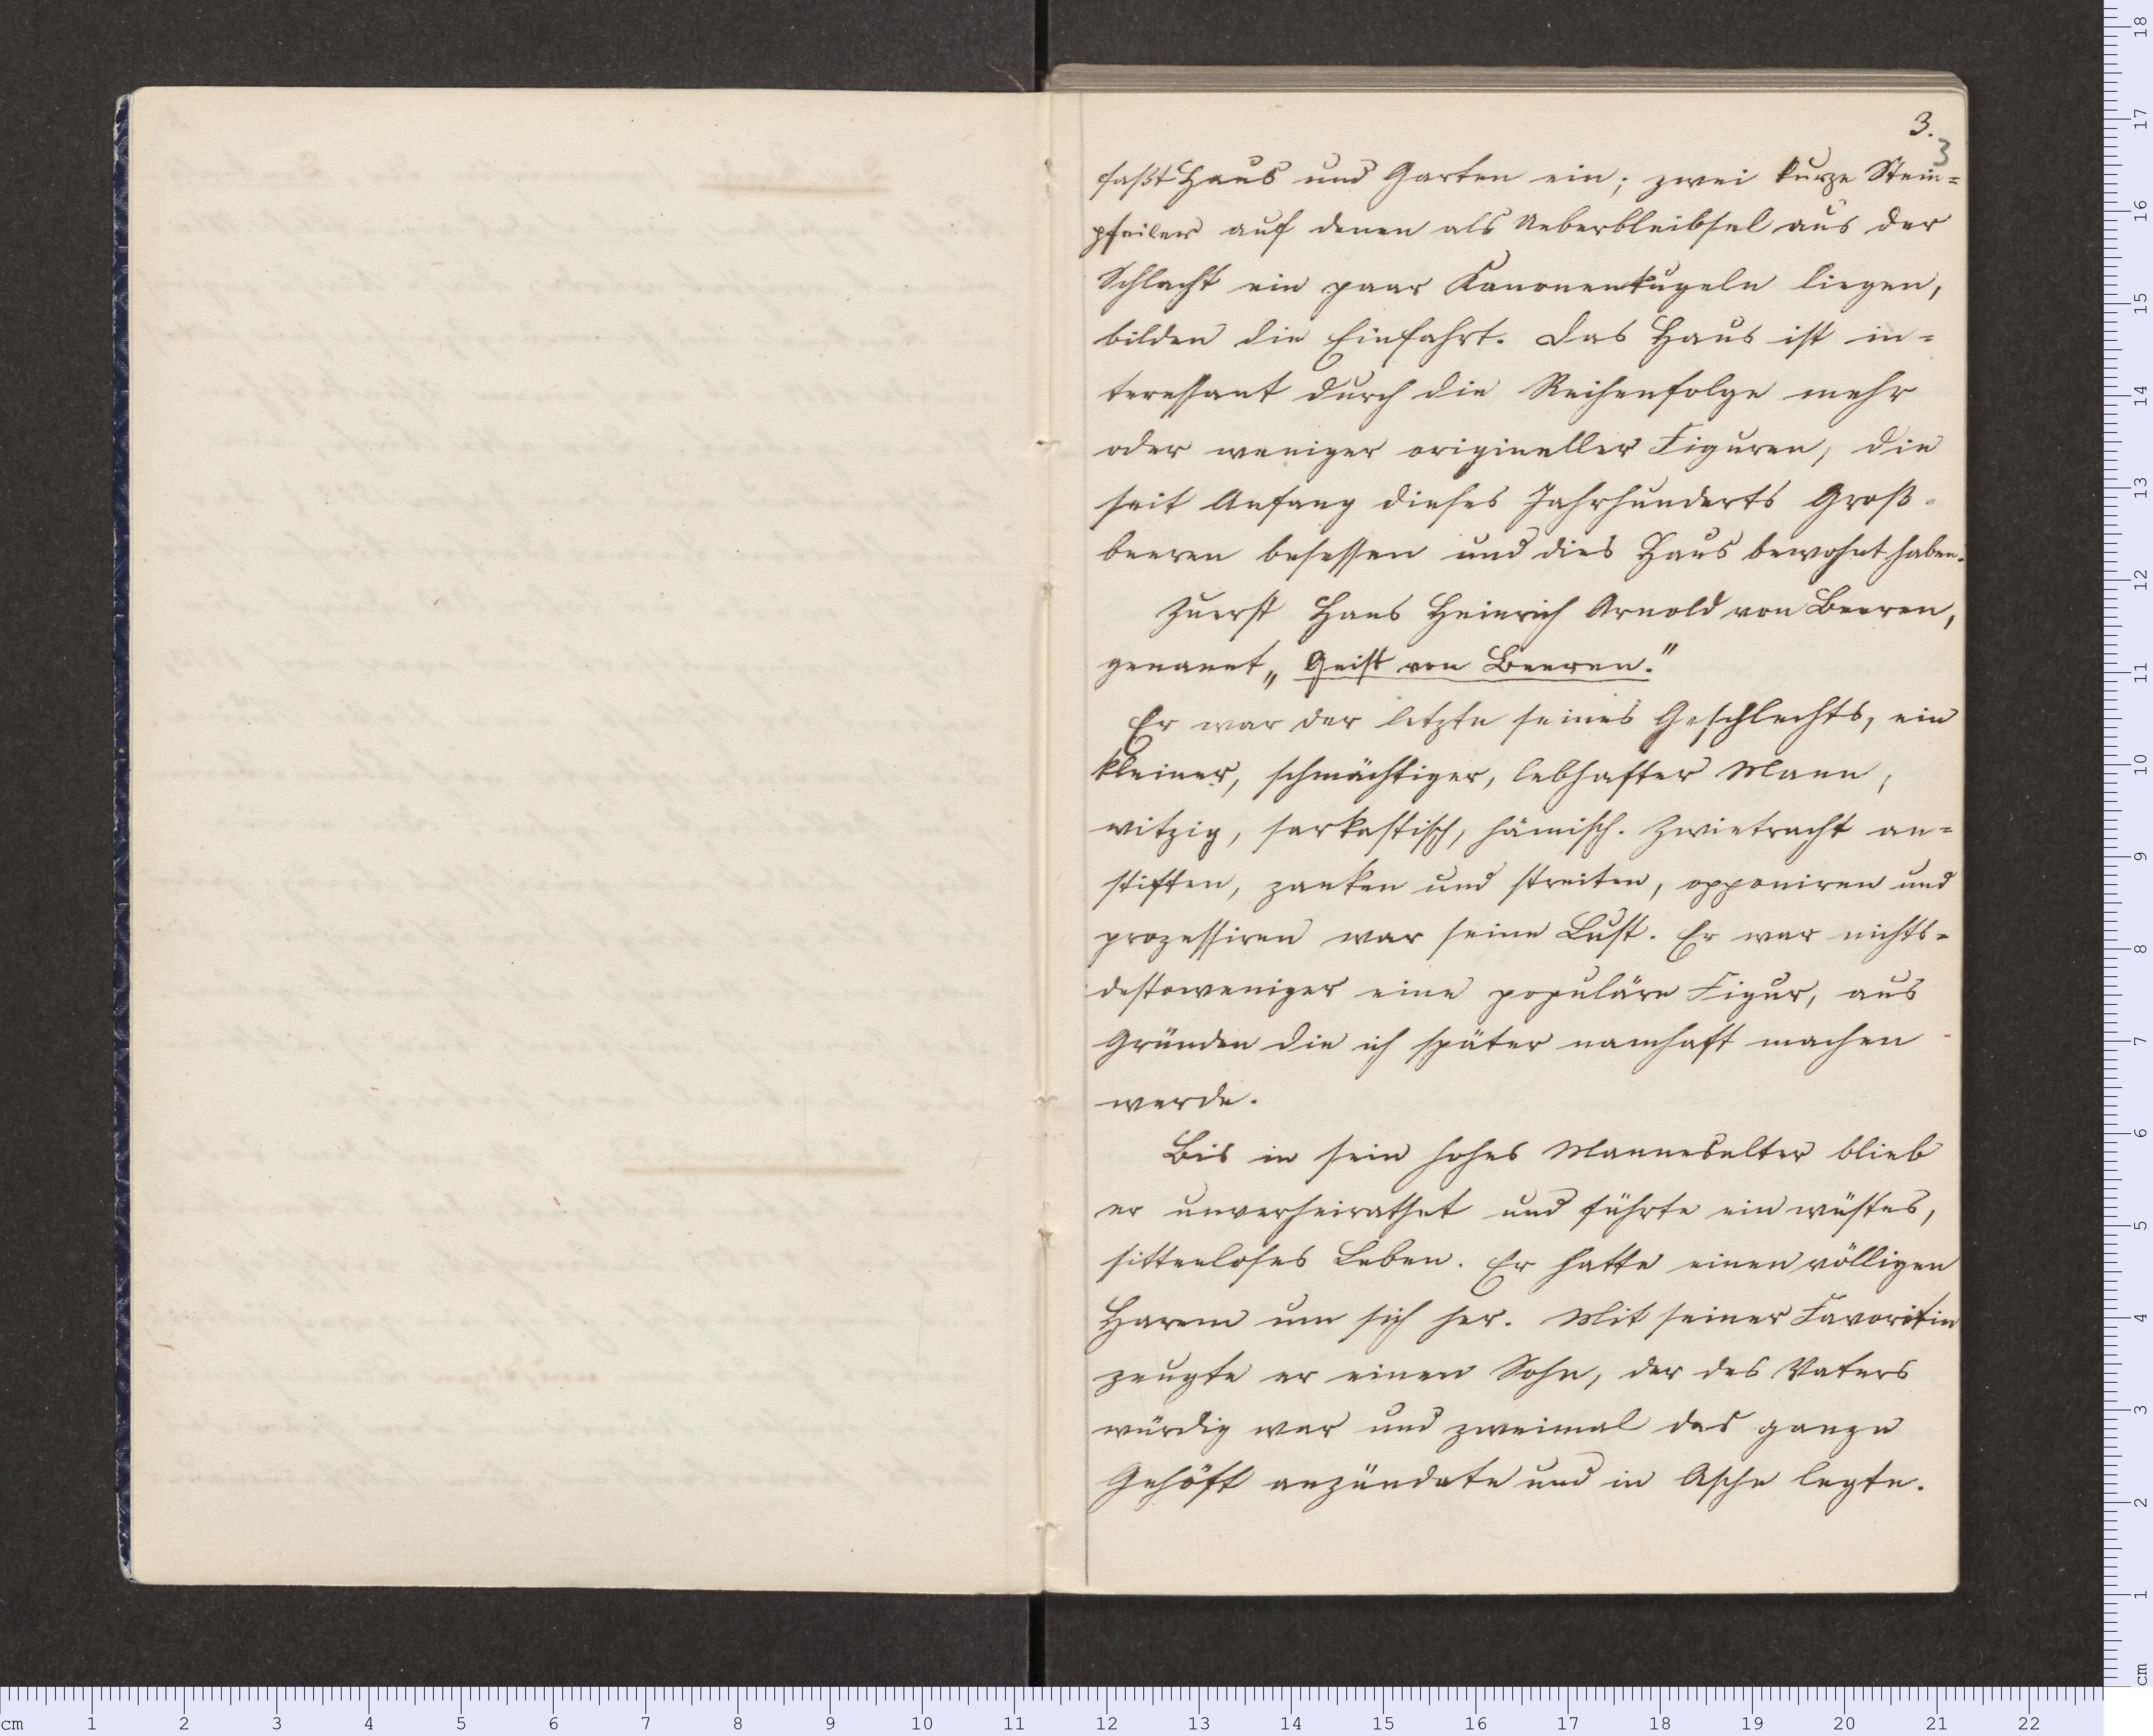 3.
3
faßt Haus und Garten ein; zwei kurze Stein=
pfeiler auf denen als Ueberbleibsel aus der
Schlacht ein paar Kanonenkugeln liegen,
bilden die Einfahrt. Das Haus ist in=
teressant durch die Reihenfolge mehr
oder weniger origineller Figuren, die
seit Anfang dieses Jahrhunderts Groß=
beeren besessen und dies Haus bewohnt haben.
Zuerst Hans Heinrich Arnold von Beeren,
genannt „Geist von Beeren."
Er war der letzte seines Geschlechts, ein
kleiner, schmächtiger, lebhafter Mann,
witzig, sarkastisch, hämisch. Zwietracht an=
stiften, zanken und streiten, opponiren und
prozessiren war seine Lust. Er war nichts=
destoweniger eine populäre Figur, aus
Gründen die ich später namhaft machen
werde.
Bis in sein hohes Mannesalter blieb
er unverheirathet und führte ein wüstes,
sittenloses Leben. Er hatte einen völligen
Harem um sich her. Mit seiner Favoritin
zeugte er einen Sohn, der des Vaters
würdig war und zweimal das ganze
Gehöft anzündete und in Asche legte.
cm 1 2 3 4 5 6 7 8 9 10 11 12 13 14 15 16 17 18 19 20 21 22
18
17
16
15
14
13
12
11
10
9
8
7
6
5
4
3
2
1
cm